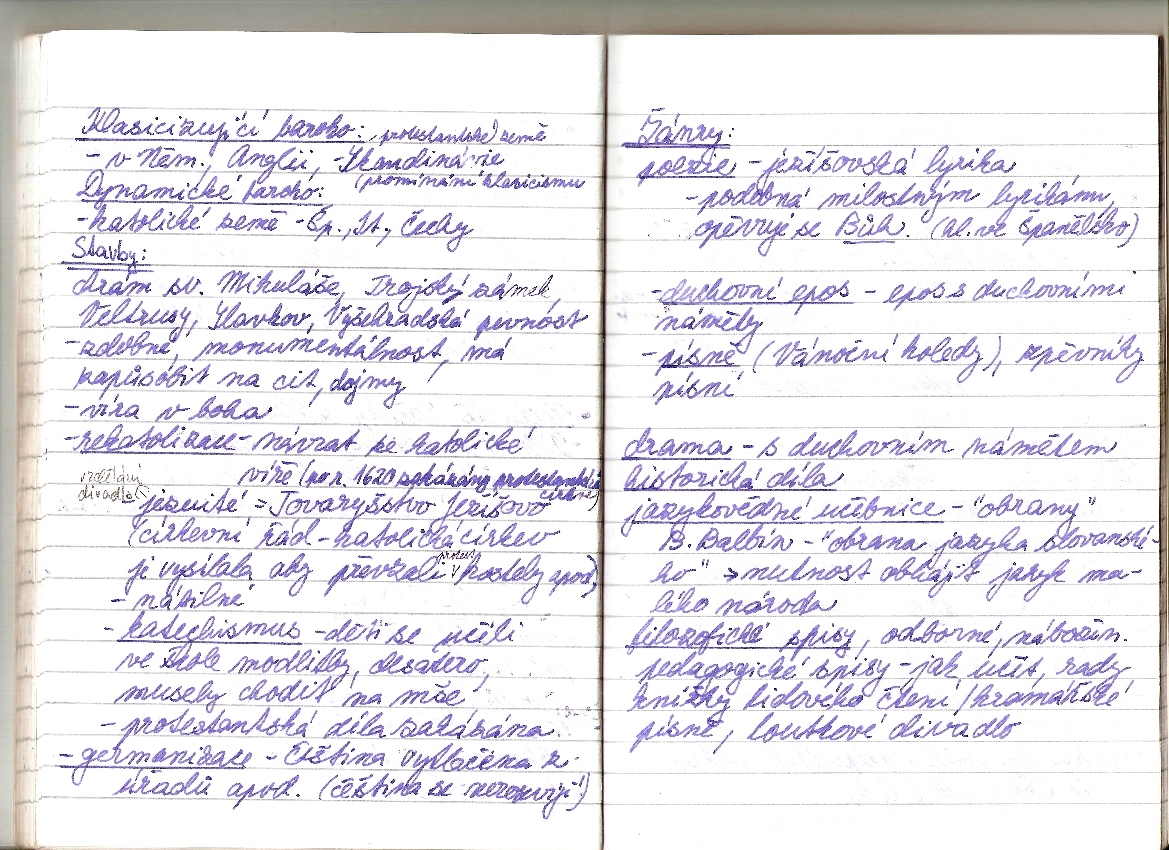 Klasicizující baroko: (protestantské) země
- v Něm., Anglii, Skandinávie
(prominání klasicismu
Dynamické baroko:
- katolické země - Šp., It., Čechy
Stavby:
chrám sv. Mikuláše, Trojský zámek,
Veltrusy, Slavkov, Vyšehradská pevnost
- zdobné, monumentálnost, má
zapůsobit na cit, dojmy
- víra v boha
- rekatolizace - návrat ke katolické
víře (po r. 1620 zakázány protestantské
církve)
vzdělání
divadlo
- jezuité = Tovaryšstvo Ježíšovo
(církevní řád - katolická církev
ji vysílala, aby převzali protest. kostely apod.)
- násilné
- katechismus - děti se učili
ve škole modlitby, desatero,
musely chodit na mše
- protestantská díla zakázána
- germanizace - čeština vytlačena z
úřadů apod. (čeština se nerozvíjí)
Žánry:
poezie - ježíšovská lyrika
- podobná milostným lyrikám,
opěvuje se Bůh. (hl. ve Španělsko)
- duchovní epos - epos s duchovními
náměty
- písně (Vánoční koledy), zpěvníky
písní
drama - s duchovním námětem
historická díla
jazykovědné učebnice - "obrany"
B. Balbín - "obrana jazyka slovanské-
ho" → nutnost obhájit jazyk ma-
lého národa
filozofické spisy, odborné, nábožen.
pedagogické spisy - jak učit, rady
knížky lidového čtení / kramářské
písně, loutkové divadlo